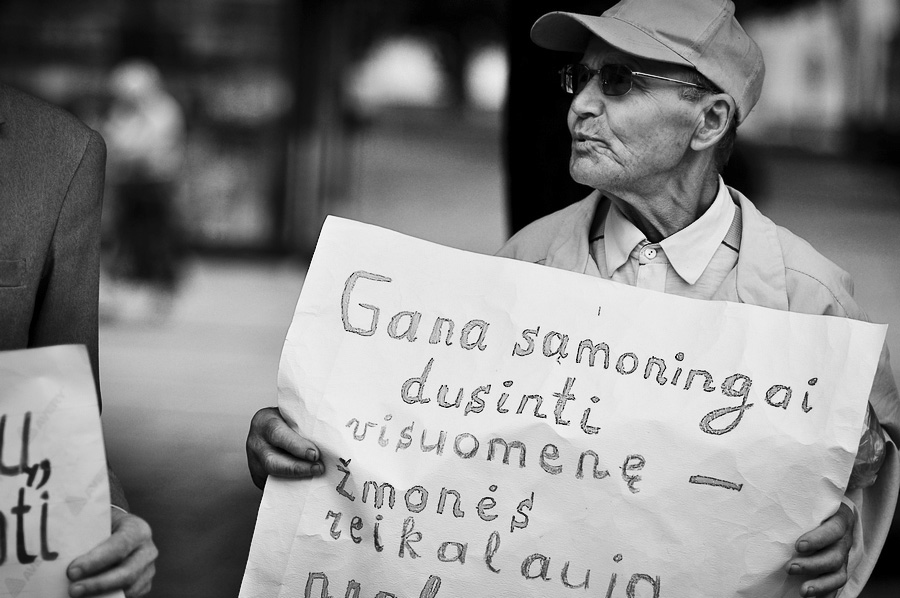 Gana sąmoningai
dusinti
visuomenę —
žmonės
reikalauja
ų,
ti